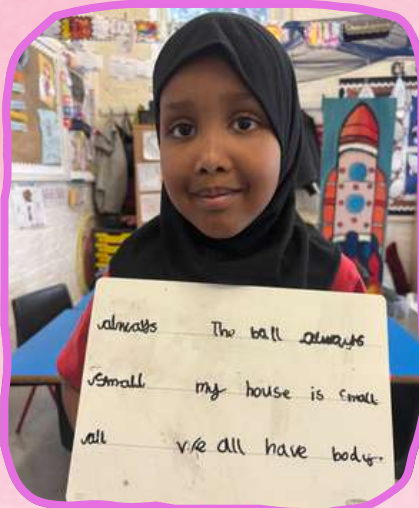 always The ball always
small my house is small
all we all have body.